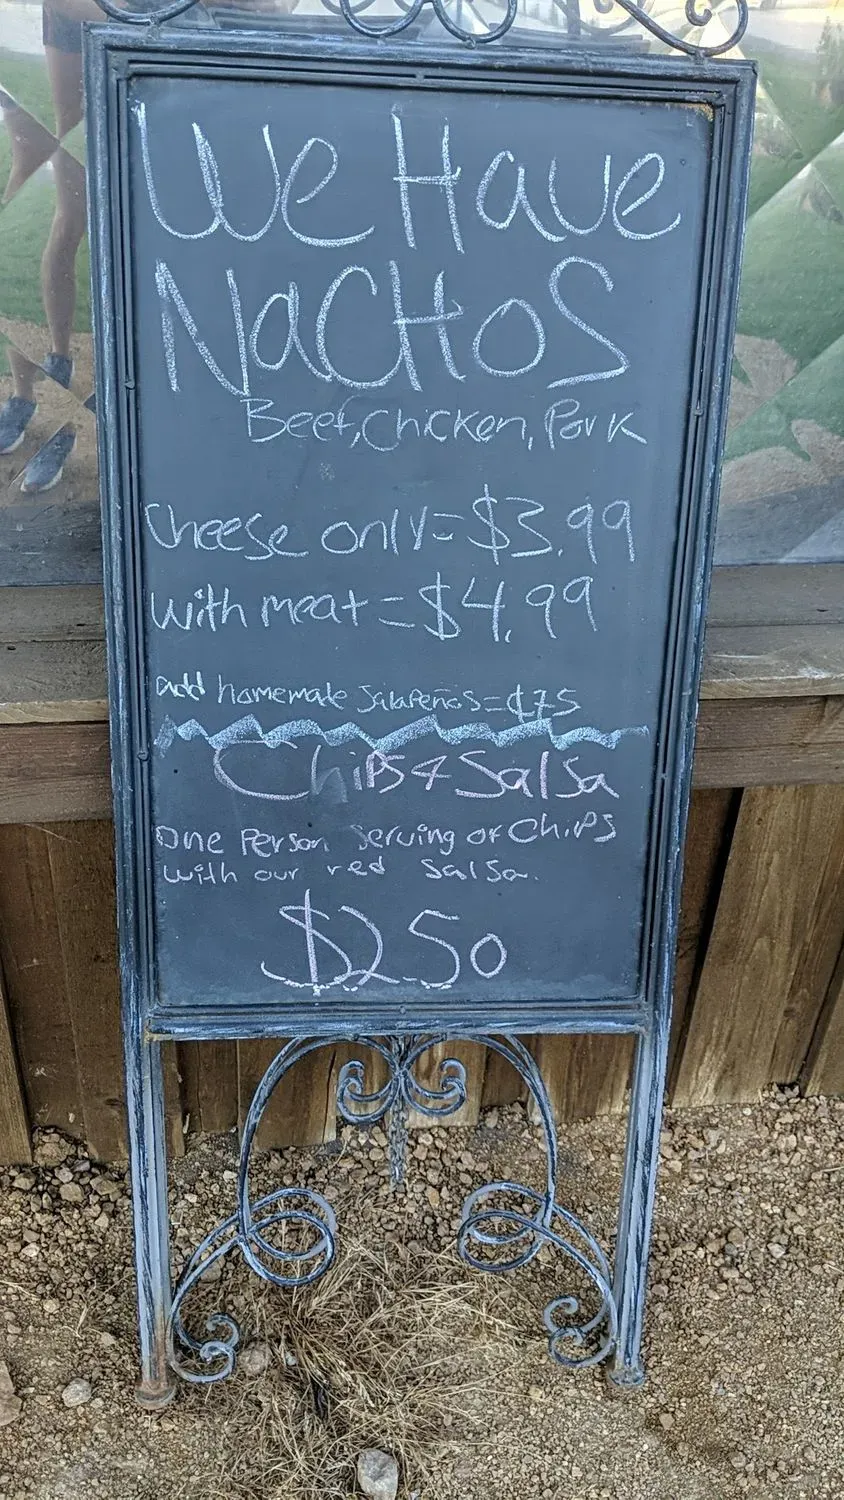 We Have
NaCHoS
Beef, Chicken, Pork
Cheese only = $3.99
with meat = $4.99
add homemade Jalapeños = ¢75
Chips & Salsa
One Person Serving of Chips
with our red Salsa.
$2.50